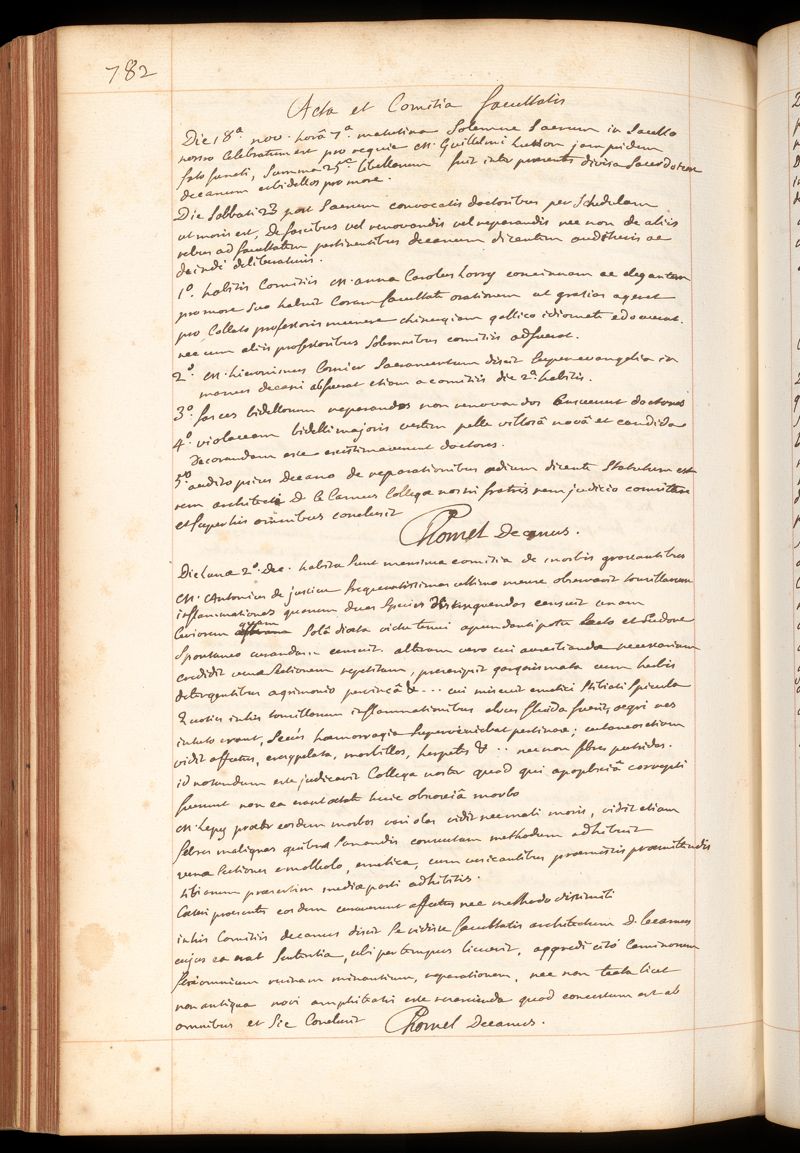 782
Acta et Comitia facultatis
Die 18ª nov. horâ 7ª matutina Solemne Sacrum in Sacello
nostro Celebratum est pro requie M. Guillelmi jampridem
fato functi, Summa 25 libellarum fuit inter praesentes divisa Sacerdotem
decanum et bidellos pro more.
Die Sabbati 23 post Sacrum convocatis doctoribus per Schedulam
ut moris est, De fascibus vel renovandis vel reparandis nec non de aliis
rebus ad facultatem pertinentibus decanum dicentem audituris ac
deinde deliberaturis.
1º. habitis Comitiis M. anna Carolus Lorry concinnam ac elegantem
pro more Suo habuit Coram facultate orationem ut gratias ageret
pro Collato professoris munere chirurgiam gallico idiomate edocuerat.
nec cum aliis professoribus Solemnibus comitiis adfuerat.
2º. M. hieronimus Cornier Sacramentum dixit Super evangelia in
manus decani abfuerat etiam a comitiis die 2ª habitis.
3º. fasces bidellorum reparandos non renovandos Censuerunt doctores
4º. violaceam bidelli majoris vestem pelle novâ et candida
Decorandam esse existimaverunt doctores.
5º audito prius Decano de reparationibus aedium dicente Statutum est
rem architecti D. le Camus Collegae nostri fratris rem judicio comittere
et Super his omnibus conclusit
Thomel Decanus.
Die lunae 2ª. Dec. habita Sunt mensurna comitia de morbis grassantibus
M. Antonius de jussieu frequentissimas ultimo mense observavit tonsillarum
inflammationes quarum duas Species distinguendas censuit unam
leviorem quam Solâ diaeta victu tenui apundanti potu lacto et Sudore
Spontaneo curandam censuit. alteram vero cui avertianda necessariam
credidit venae Sectionem repetitam, praescripsit gargarismata cum herbis
detergentibus agrimonio pervincâ &... cui miscuit emetici Stibiati Spicula
2 in his tonsillarum inflammationibus alvus fluida fuerit, aegri
in tuto erant, Secus haemorragia Superveniebat pertinax; cutaneos etiam
vidit affectus, erisypelata, morbillos, herpetes & .. nec non febres putridas.
id notandum esse judicavit Collega noster quod qui apoplexiâ correpti
fuerunt non ea erant aetate huic obnoxiâ morbo
M. Lepy praeter eosdem morbos variolas vidit nec mali moris, vidit etiam
febres malignas quibus Sanandis consuetam methodum adhibuit
venae Sectiones emollesto, emetica, cum vesicantibus praemissis praemittendis
tibiarum praesertim mediae parti adhibitis.
Caeteri praesentes eosdem curaverunt affectus nec methodo dissimili
in his Comitiis decanus dixit Se vidisse facultatis architectum D. Lecamus
cujus ea erat Sententia, ubi per tempus licuerit, aggredi citò Caminorum
ferè omnium ruinam minantium, reparationem, nec non tecta licet
non antiqua novi amphiteatri esse resarcienda quod concessum est ab
omnibus et Sic Conclusit Thomel Decanus.